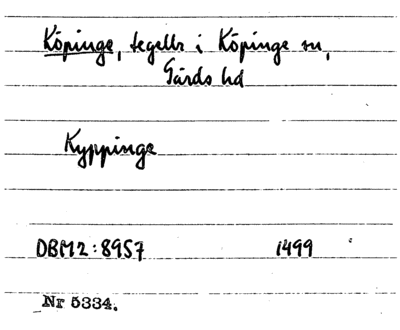 Köpinge, tegelbr i Köpinge sn,
Gärds hd
Kyppinge
DBM2:8957 1499
Nr 5334.